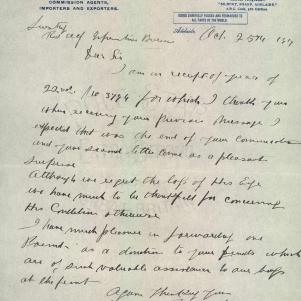 COMMISSION AGENTS,
IMPORTERS AND EXPORTERS.
"GILWAY, SHARP, ADELAIDE"
A.B.C. Code, 5th Edition
GOODS CAREFULLY PACKED AND FORWARDED TO
ALL PARTS OF THE WORLD
Adelaide, Oct. 25th 191
Red
Dear Sir
I am in receipt of yours of
22nd. No 3784 for which I thank you
When receiving your previous message I
expected that was the end of your
and your second letter came as a pleasant
surprise
Although we regret the loss of His Eye
we have much to be thankful for concerning
His Condition otherwise
I have much pleasure in forwarding one
Pound as a donation to your funds which
are of such valuable assistance to our boys
at the front
Again thanking you